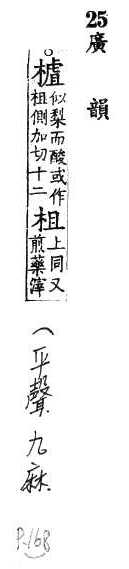 25 廣韻
樝似梨而酸或作
柤側加切十二柤上同又
煎藥滓
（平聲 九麻
P.168